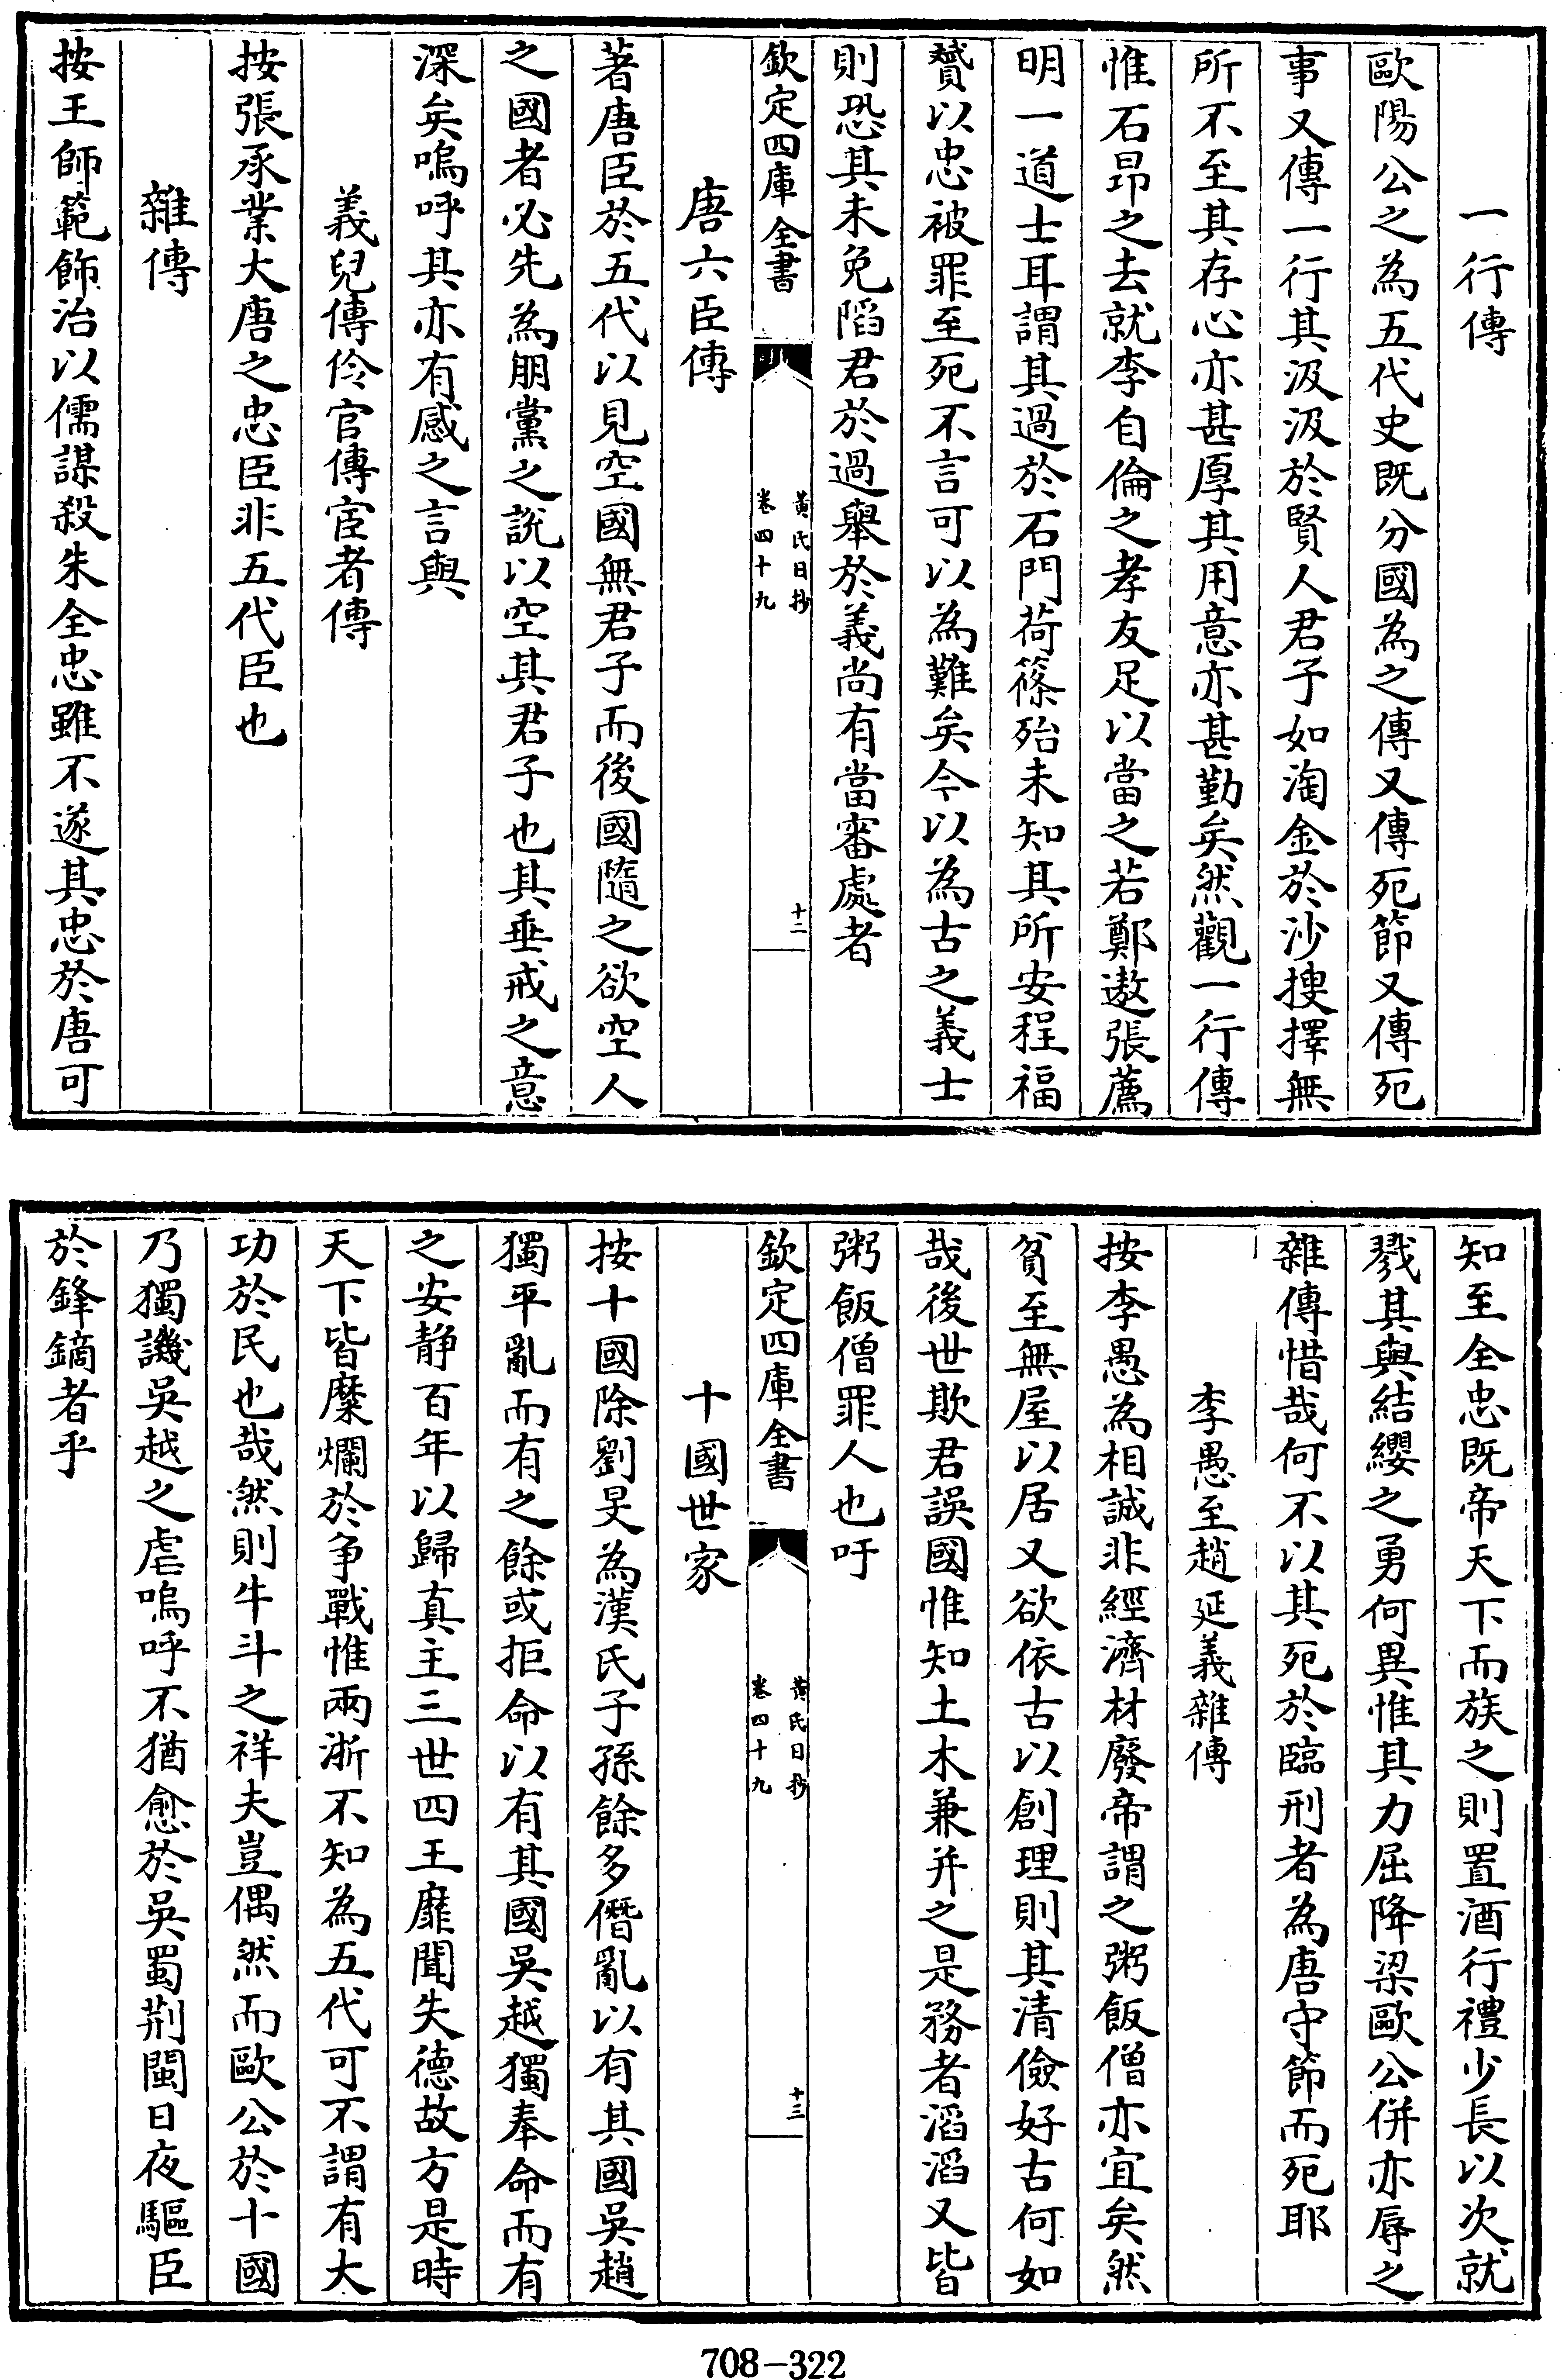 一行傳
歐陽公之為五代史既分國為之傳又傳死節又傳死
事又傳一行其汲汲於賢人君子如淘金於沙搜擇無
所不至其存心亦甚厚其用意亦甚勤矣然觀一行傳
惟石昂之去就李自倫之孝友足以當之若鄭遨張薦
明一道士耳謂其過於石門荷篠殆未知其所安程福
贇以忠被罪至死不言可以為難矣今以為古之義士
則恐其未免陷君於過舉於義尚有當審處者
欽定四庫全書
黃氏日抄
卷四十九
十二
唐六臣傳
著唐臣於五代以見空國無君子而後國隨之欲空人
之國者必先為朋黨之說以空其君子也其垂戒之意
深矣嗚呼其亦有感之言與
義兒傳伶官傳宦者傳
按張承業大唐之忠臣非五代臣也
雜傳
按王師範飾治以儒謀殺朱全忠雖不遂其忠於唐可
知至全忠既帝天下而族之則置酒行禮少長以次就
戮其與結纓之勇何異惟其力屈降梁歐公併亦辱之
雜傳惜哉何不以其死於臨刑者為唐守節而死耶
李愚至趙延義雜傳
按李愚為相誠非經濟材廢帝謂之粥飯僧亦宜矣然
貧至無屋以居又欲依古以創理則其清儉好古何如
哉後世欺君誤國惟知土木兼并之是務者滔滔又皆
粥飯僧罪人也吁
欽定四庫全書
黃氏日抄
卷四十九
十三
十國世家
按十國除劉旻為漢氏子孫餘多僭亂以有其國吳趙
獨平亂而有之餘或拒命以有其國吳越獨奉命而有
之安靜百年以歸真主三世四王靡聞失德故方是時
天下皆糜爛於爭戰惟兩浙不知為五代可不謂有大
功於民也哉然則牛斗之祥夫豈偶然而歐公於十國
乃獨譏吳越之虐嗚呼不猶愈於吳蜀荆閩日夜驅臣
於鋒鏑者乎
708-322